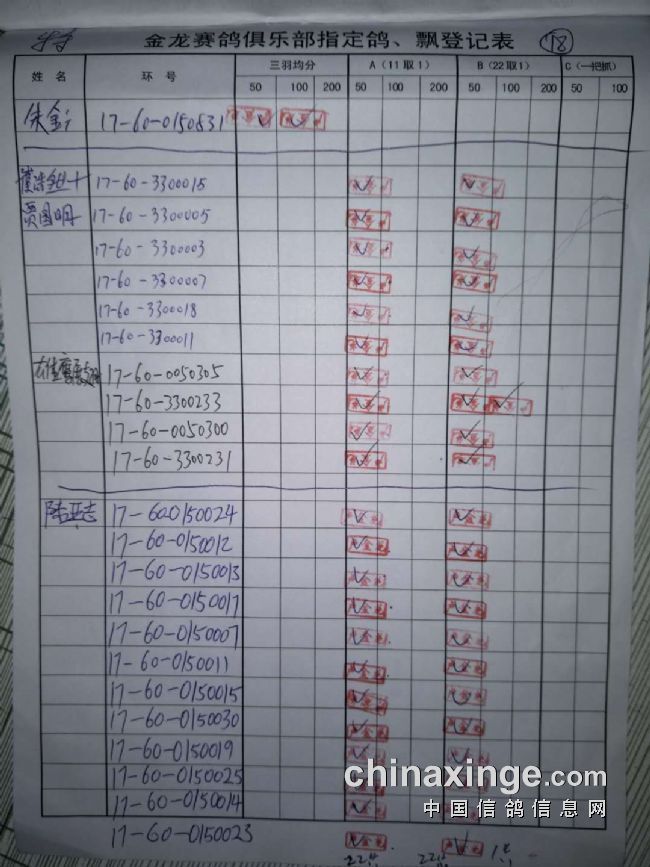 金龙赛鸽俱乐部指定鸽、飘登记表 18
姓 名 环 号 三羽均分 A（11取1） B（22取1） C（一把抓）
50 100 200 50 100 200 50 100 200 50 100
17-60-0150831
17-60-3300015
贾国明 17-60-3300005
17-60-3300003
17-60-3300007
17-60-3300018
17-60-3300011
17-60-0050305
17-60-3300233
17-60-0050300
17-60-3300231
陆亚志 17-600150024
17-60-0150012
17-60-0150013
17-60-0150017
17-60-0150007
17-60-0150011
17-60-0150015
17-60-0150030
17-60-0150019
17-60-0150025
17-60-0150014
17-60-0150023
chinaxinge.com
中国信鸽信息网